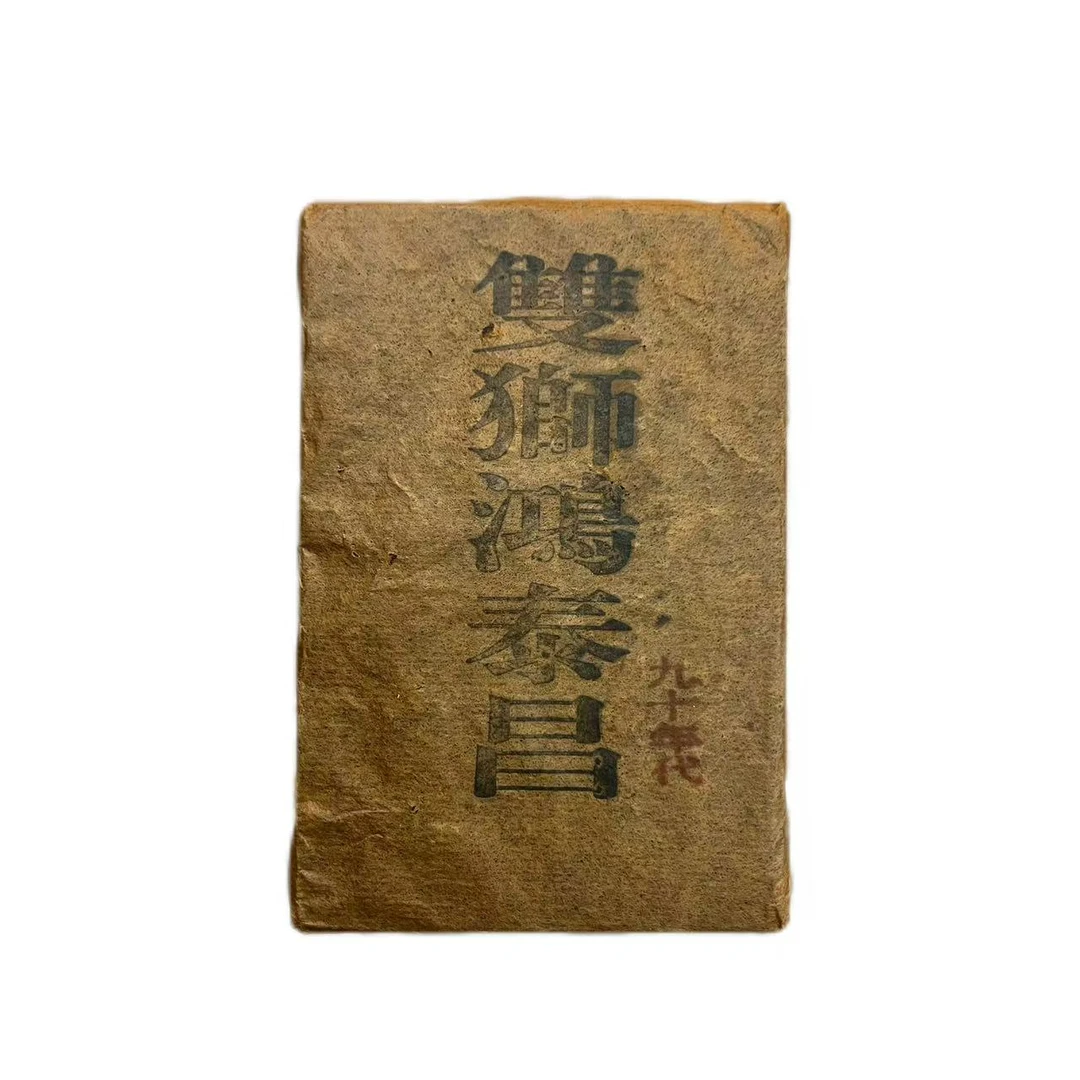 雙獅鴻泰昌
九十年代